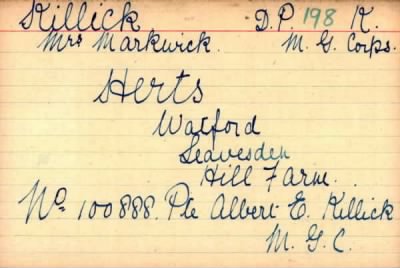 Killick D.P. 198 K.
Mrs Markwick. M. G. Corps.
Herts
Watford
Leavesden
Hill Farm.
No. 100888. Pte Albert E. Killick
M. G. C.